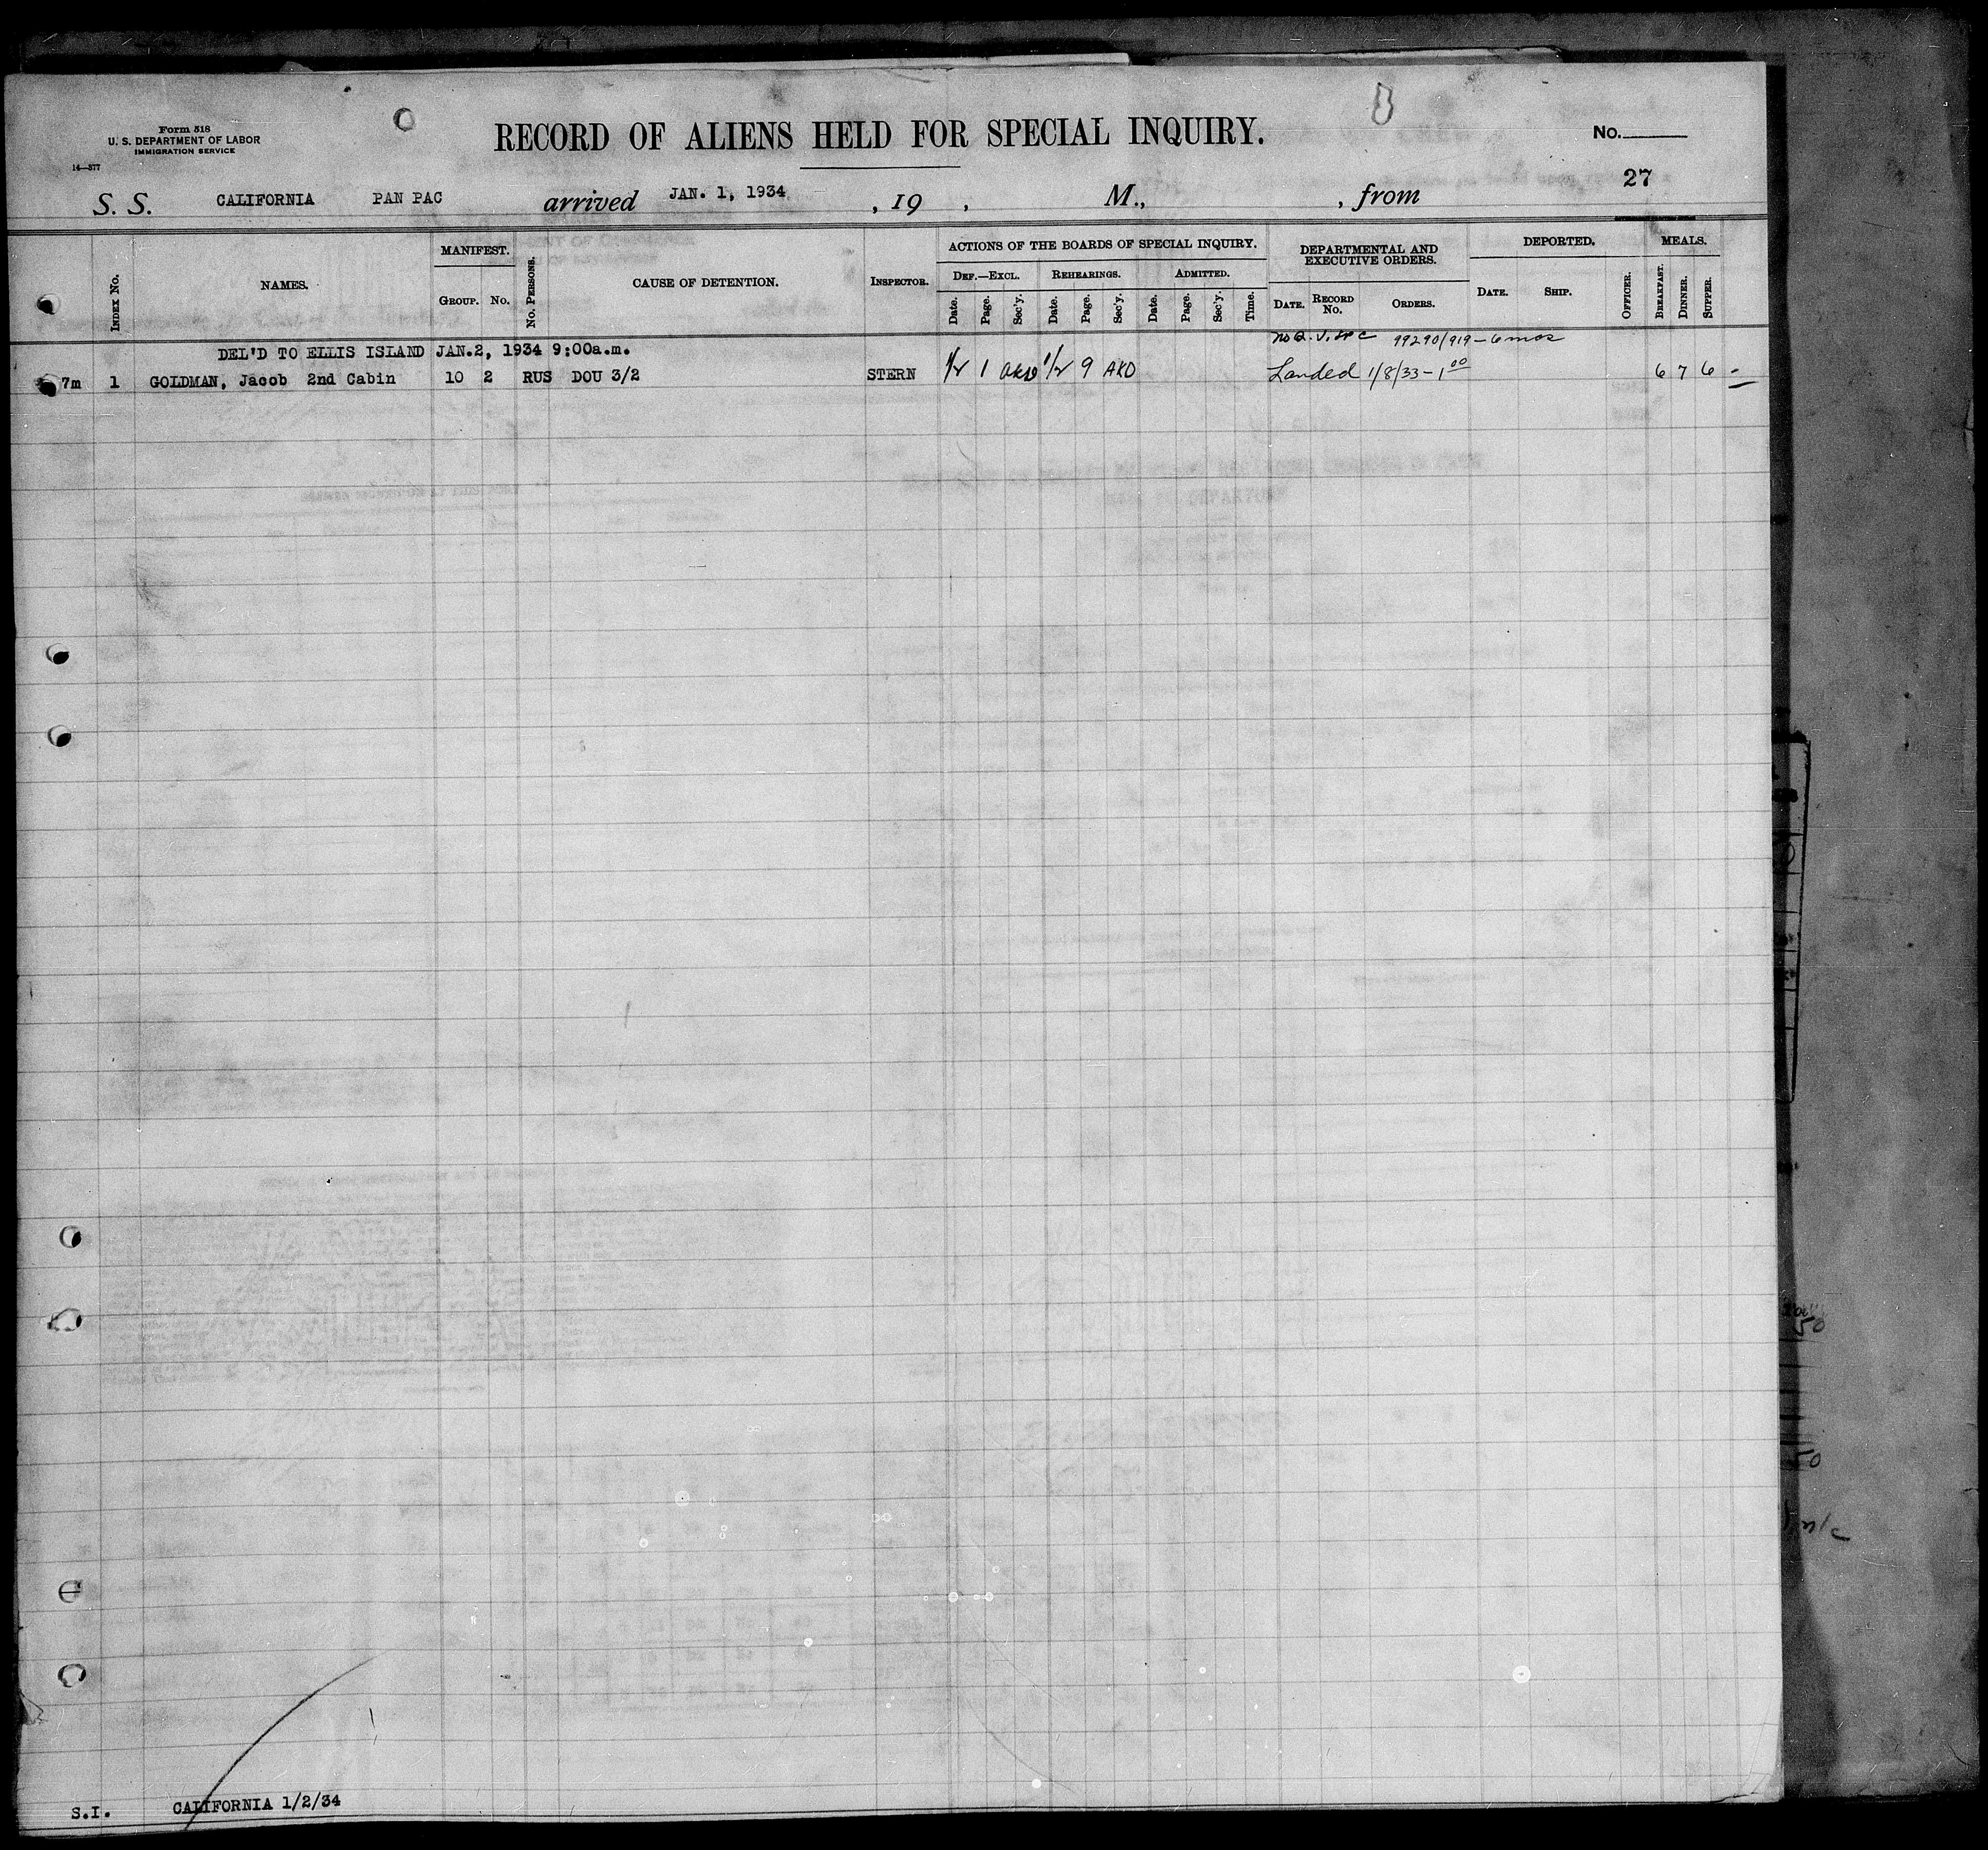 Form 518
U. S. DEPARTMENT OF LABOR
IMMIGRATION SERVICE
14—577
RECORD OF ALIENS HELD FOR SPECIAL INQUIRY.
No.
27
S. S. CALIFORNIA PAN PAC arrived JAN. 1, 1934, 19 , M., , from
INDEX No.
NAMES.
MANIFEST.
GROUP. No.
No. PERSONS.
CAUSE OF DETENTION.
INSPECTOR.
ACTIONS OF THE BOARDS OF SPECIAL INQUIRY.
DEF.—EXCL. REHEARINGS. ADMITTED.
Date. Page. Sec'y. Date. Page. Sec'y. Date. Page. Sec'y. Time.
DEPARTMENTAL AND EXECUTIVE ORDERS.
DATE. RECORD No. ORDERS.
DEPORTED.
DATE. SHIP.
OFFICER.
MEALS.
BREAKFAST. DINNER. SUPPER.
DEL'D TO ELLIS ISLAND JAN.2, 1934 9:00a.m.
99290/919 - 6 mos
7m 1 GOLDMAN, Jacob 2nd Cabin 10 2 RUS DOU 3/2 STERN 1/2 1 AKD 1/2 9 AKD Landed 1/8/33 - 1 00 6 7 6
S.I. CALIFORNIA 1/2/34